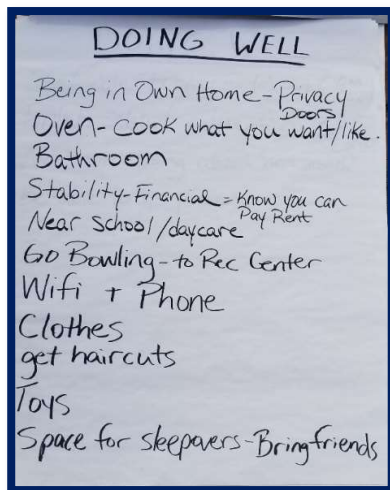 DOING WELL
Being in Own Home - Privacy
Doors
Oven - Cook what you want/like.
Bathroom
Stability - Financial = Know you can
Pay Rent
Near School/daycare
Go Bowling - to Rec Center
Wifi + Phone
Clothes
get haircuts
Toys
Space for sleepovers - Bring friends